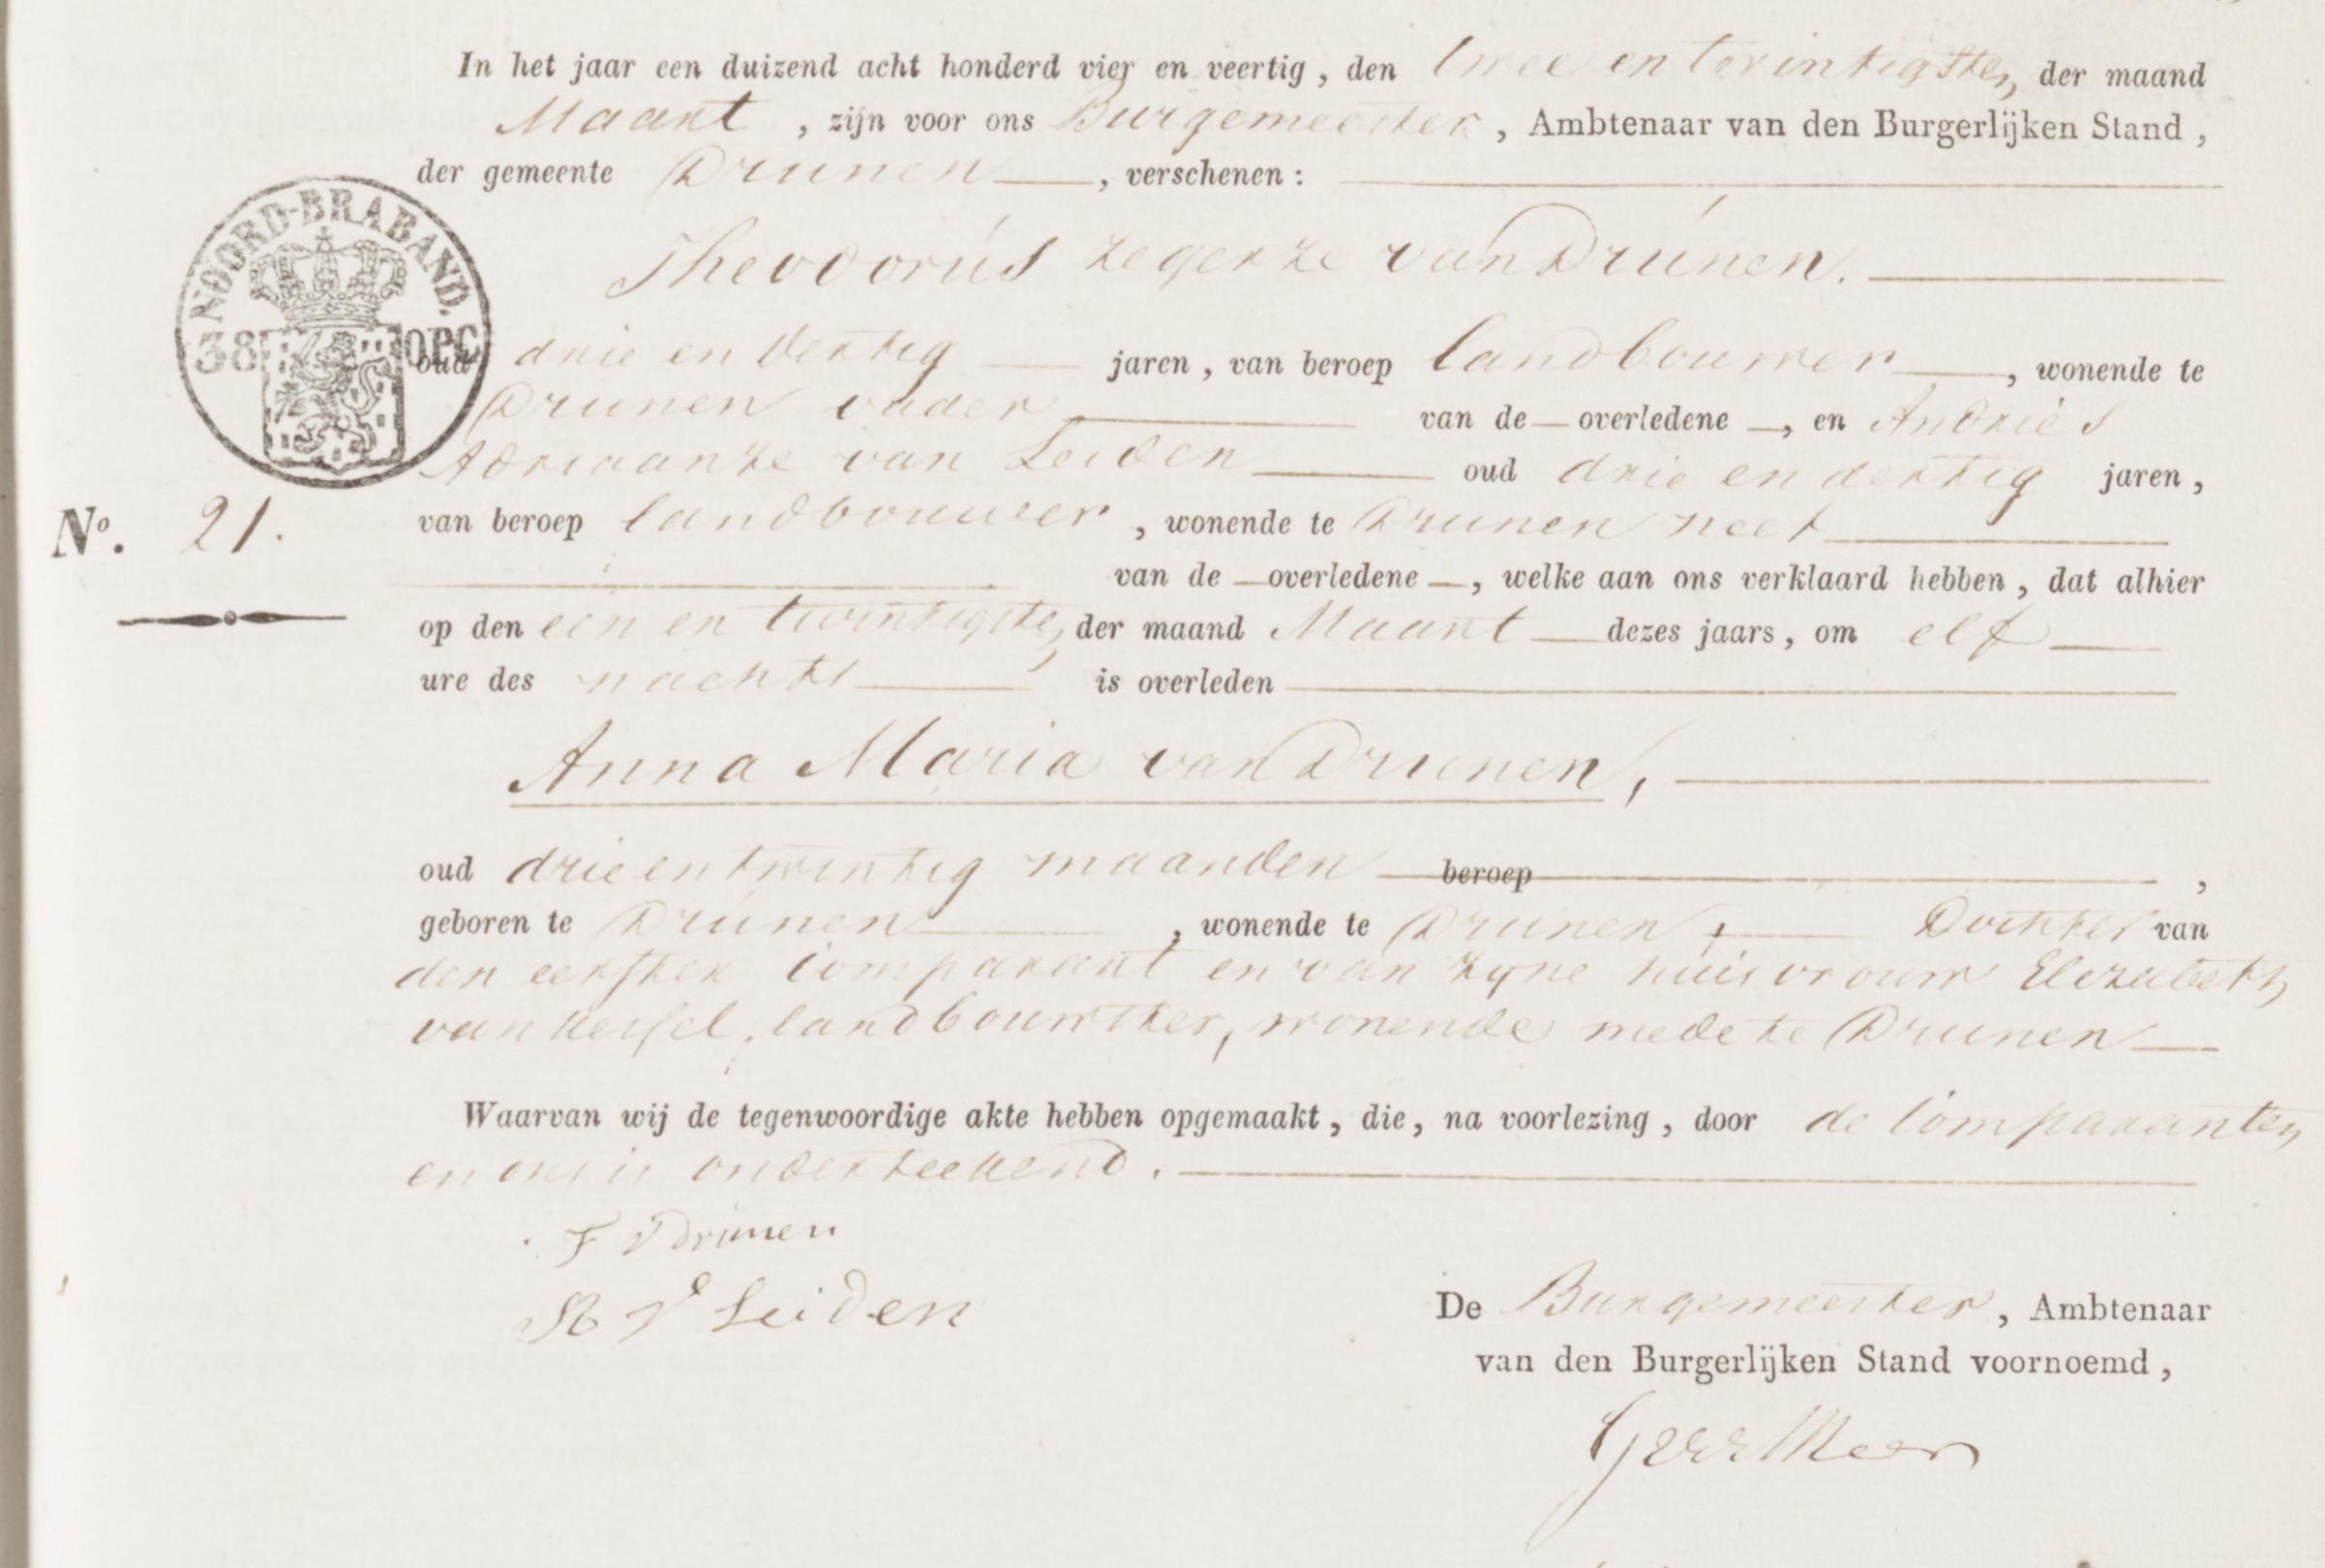 In het jaar een duizend acht honderd vier en veertig, den twee en twintigsten der maand
Maart, zijn voor ons Burgemeester, Ambtenaar van den Burgerlijken Stand,
der gemeente Drunen, verschenen:
NOORD-BRABAND.
38 OPC
Theodorus Zegerze van Drunen.
oud drie en dertig jaren, van beroep landbouwer, wonende te
Drunen vader van de overledene, en Andries
Adriaanze van Leiden oud drie en dertig jaren,
No. 21.
van beroep landbouwer, wonende te Drunen neef
van de overledene, welke aan ons verklaard hebben, dat alhier
op den een en twintigsten der maand Maart dezes jaars, om elf
ure des nachts is overleden
Anna Maria van Drunen,
oud drie en twintig maanden beroep ,
geboren te Drunen, wonende te Drunen, Dochter van
den eersten Comparant en van zyne huisvrouw Elizabeth
van Hessel, landbouwster, wonende mede te Drunen
Waarvan wij de tegenwoordige akte hebben opgemaakt, die, na voorlezing, door de Comparanten
en ons is onderteekend.
F V Drunen
A V Leiden
De Burgemeester, Ambtenaar
van den Burgerlijken Stand voornoemd,